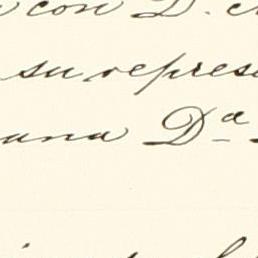 con D.
su repres
ana Dª